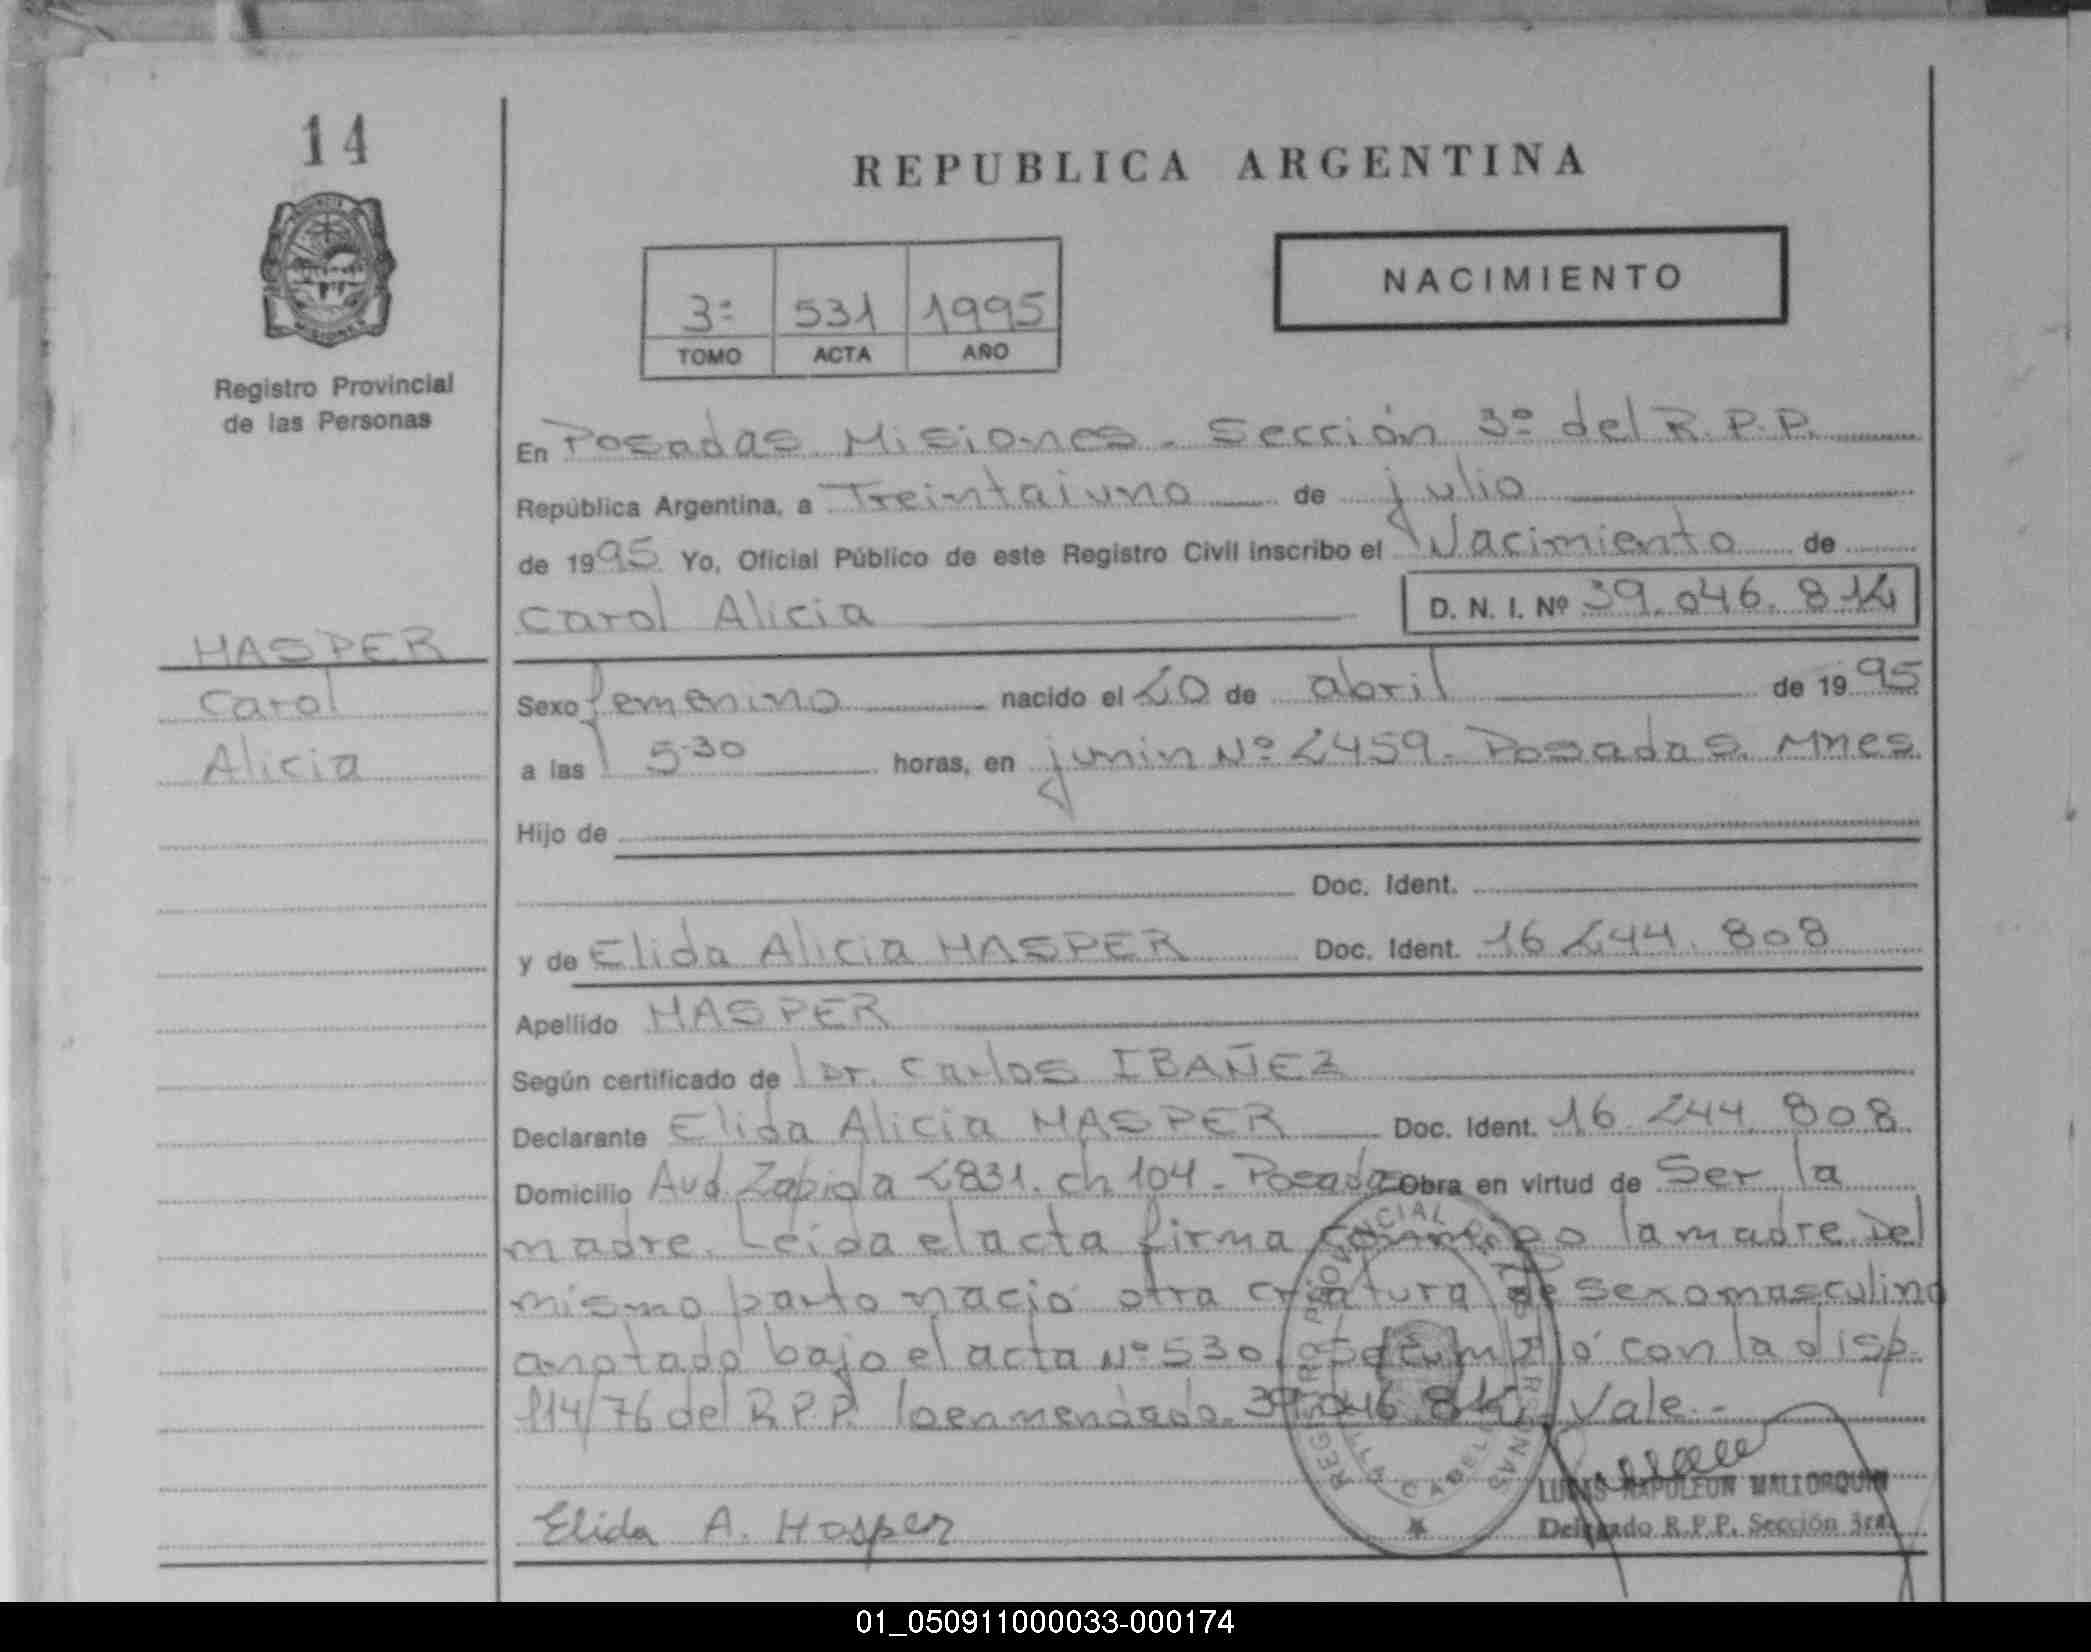 14
REPUBLICA ARGENTINA
NACIMIENTO
3º 531 1995
TOMO ACTA AÑO
Registro Provincial
de las Personas
En Posadas Misiones - Sección 3º del R.P.P.
República Argentina, a Treintaiuno de julio
de 1995 Yo, Oficial Público de este Registro Civil inscribo el Nacimiento de
Carol Alicia D. N. I. Nº 39.046.814
HASPER
Carol
Alicia
Sexo femenino nacido el 20 de abril de 1995
a las 5·30 horas, en junin Nº 2459 - Posadas. Mnes.
Hijo de
Doc. Ident.
y de Elida Alicia HASPER Doc. Ident. 16 244. 808
Apellido HASPER
Según certificado de Dr. Carlos IBAÑEZ
Declarante Elida Alicia HASPER Doc. Ident. 16. 244. 808
Domicilio Avd. Zapiola 2831. ch 104 - Posadas Obra en virtud de Ser la
madre. Leida el acta firma conmigo la madre. Del
mismo parto nació otra criatura de sexo masculino
anotado bajo el acta Nº 530, se cumplió con la disp.
114/76 del R.P.P. lo enmendado. 39.046.814. Vale.-
REGISTRO PROVINCIAL DE LAS PERSONAS
Elida A. Hasper
NAPOLEON MALLORQUIN
Delegado R.P.P. Sección 3ra.
01_050911000033-000174